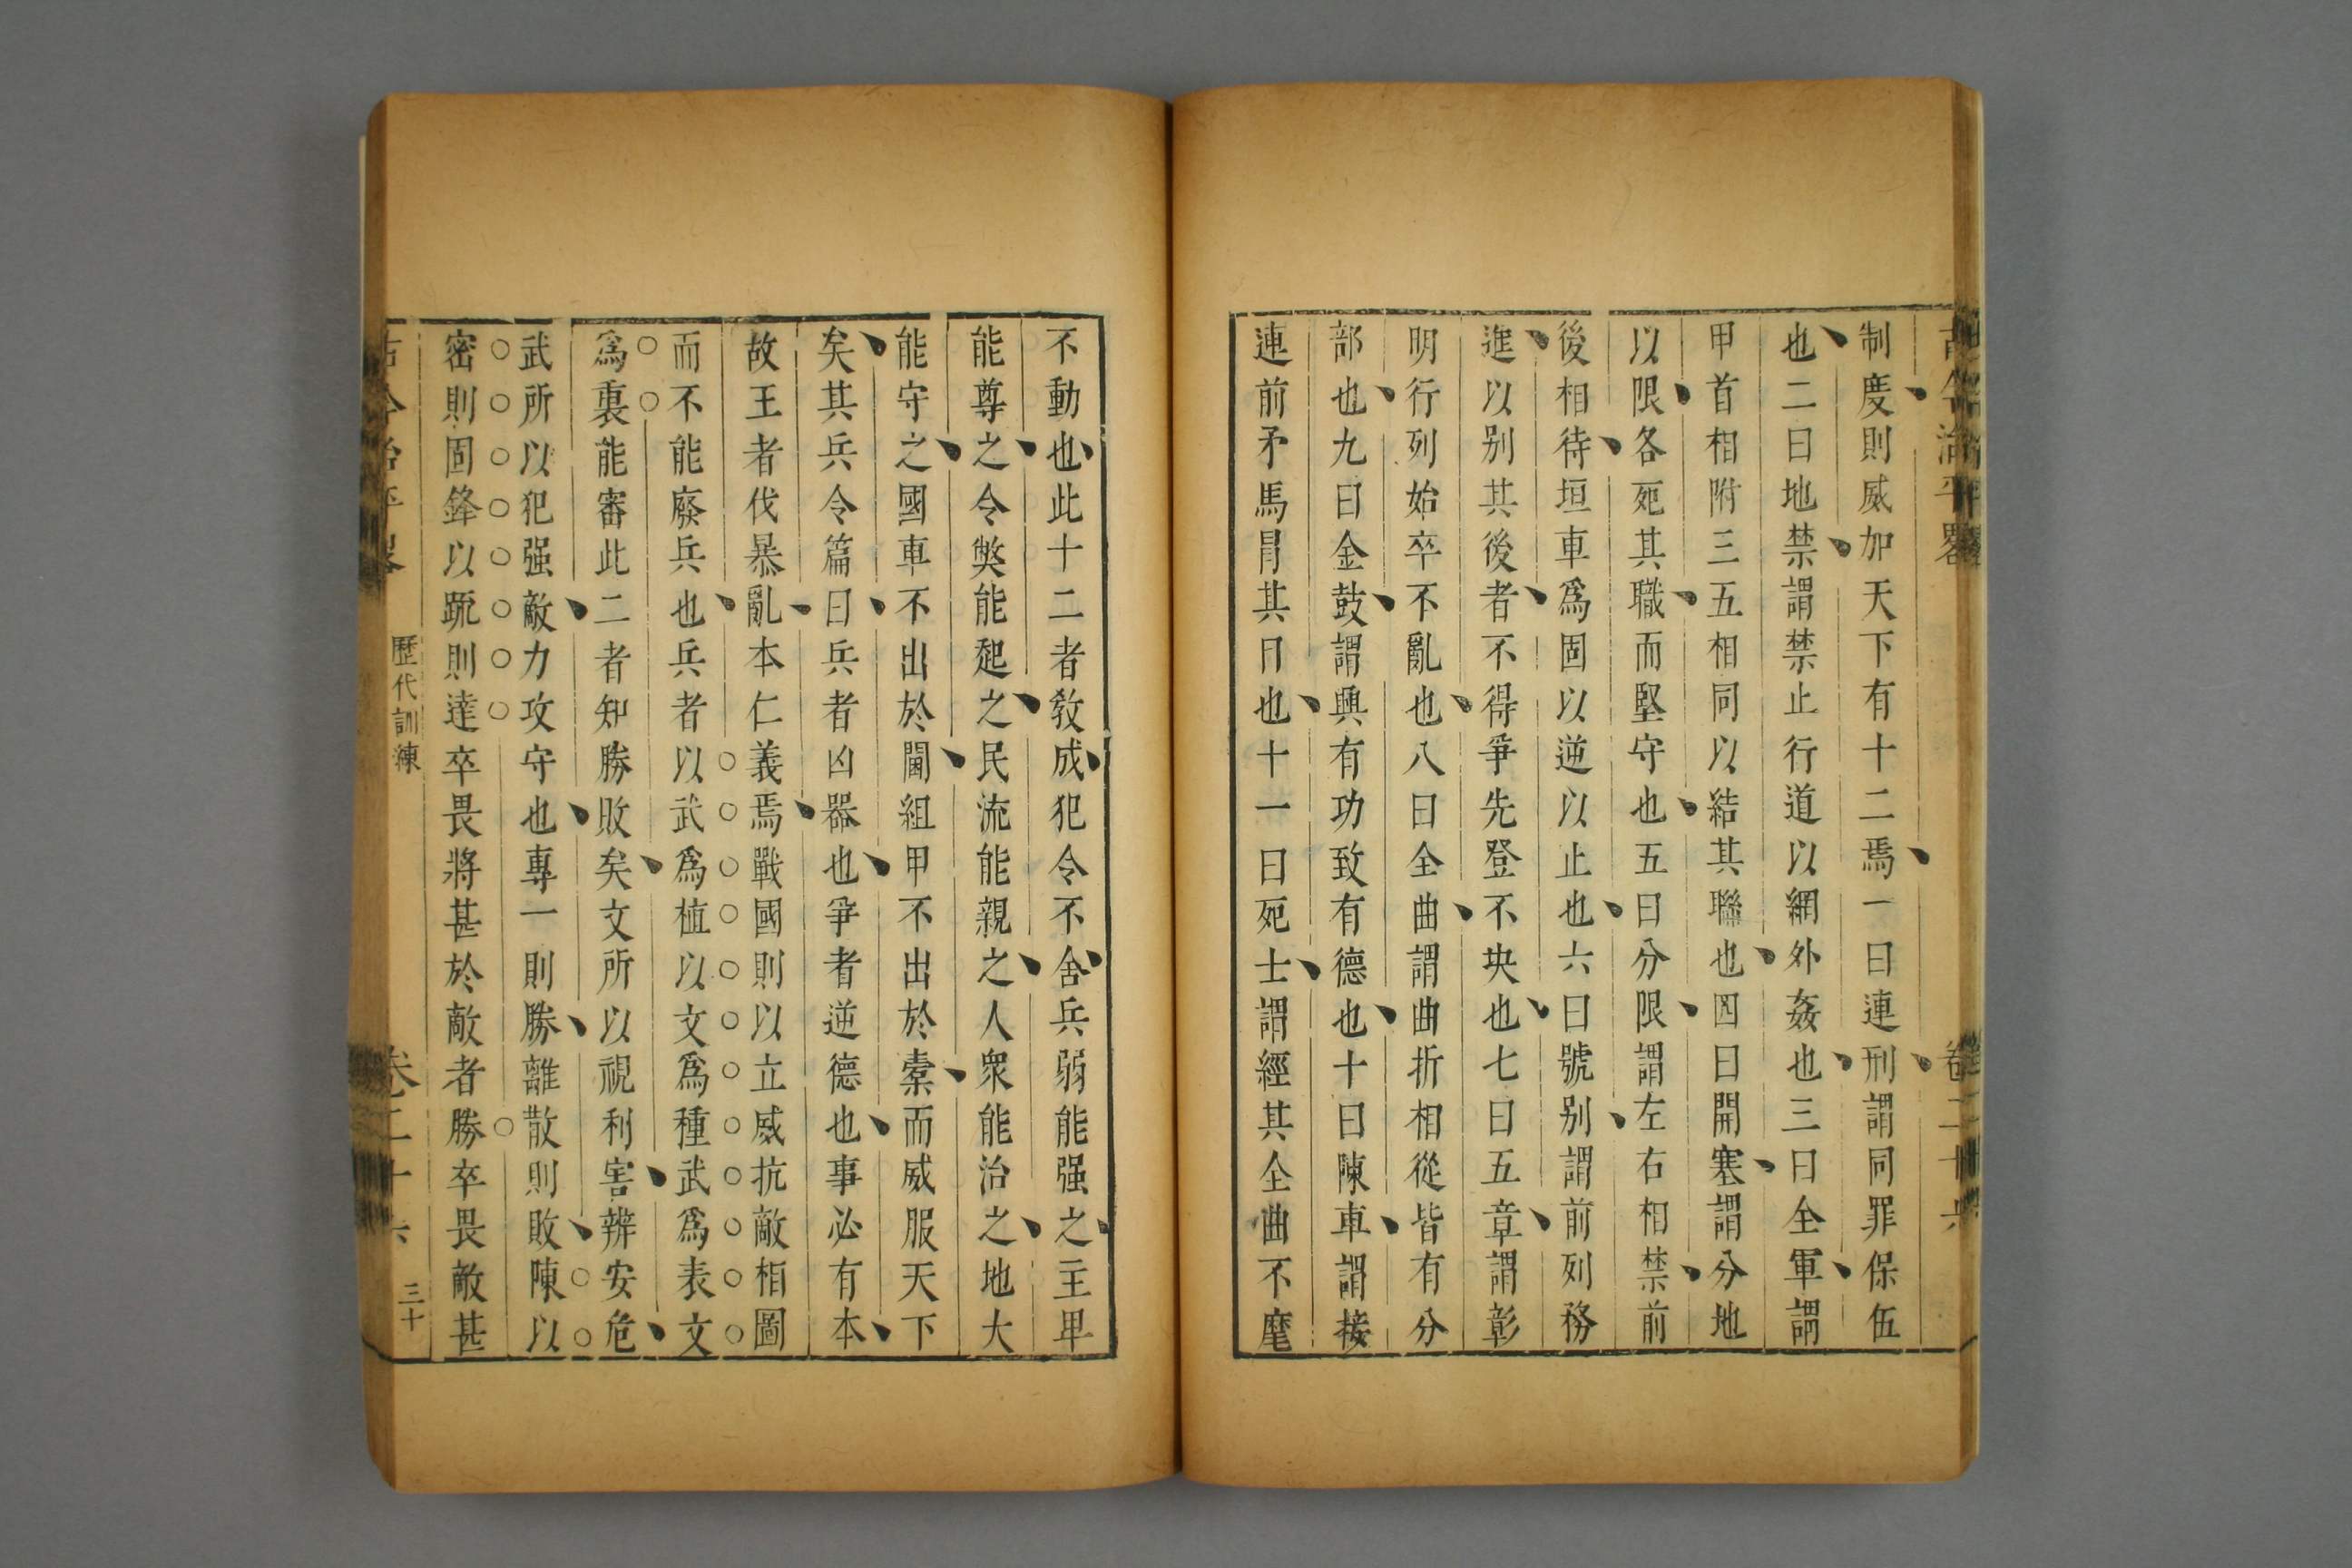 制度則威加天下有十二焉一曰連刑謂同罪保伍
也二曰地禁謂禁止行道以網外姦也三曰全軍謂
甲首相附三五相同以結其聯也四曰開塞謂分地
以限各死其職而堅守也五曰分限謂左右相禁前
後相待垣車爲固以逆以止也六曰號别謂前列務
進以别其後者不得爭先登不次也七曰五章謂彰
明行列始卒不亂也八曰全曲謂曲折相從皆有分
部也九曰金鼓謂興有功致有德也十曰陳車謂接
連前矛馬冒其目也十一曰死士謂經其全曲不麾
不動也此十二者教成犯令不舍兵弱能强之主卑
能尊之令獘能起之民流能親之人衆能治之地大
能守之國車不出於閫組甲不出於櫜而威服天下
矣其兵令篇曰兵者凶器也爭者逆德也事必有本
故王者伐暴亂本仁義焉戰國則以立威抗敵相圖
而不能廢兵也兵者以武爲植以文爲種武爲表文
爲裏能審此二者知勝敗矣文所以視利害辨安危
武所以犯强敵力攻守也專一則勝離散則敗陳以
密則固鋒以䟽則達卒畏將甚於敵者勝卒畏敵甚
古今治平畧
歷代訓練
卷二十六
三十